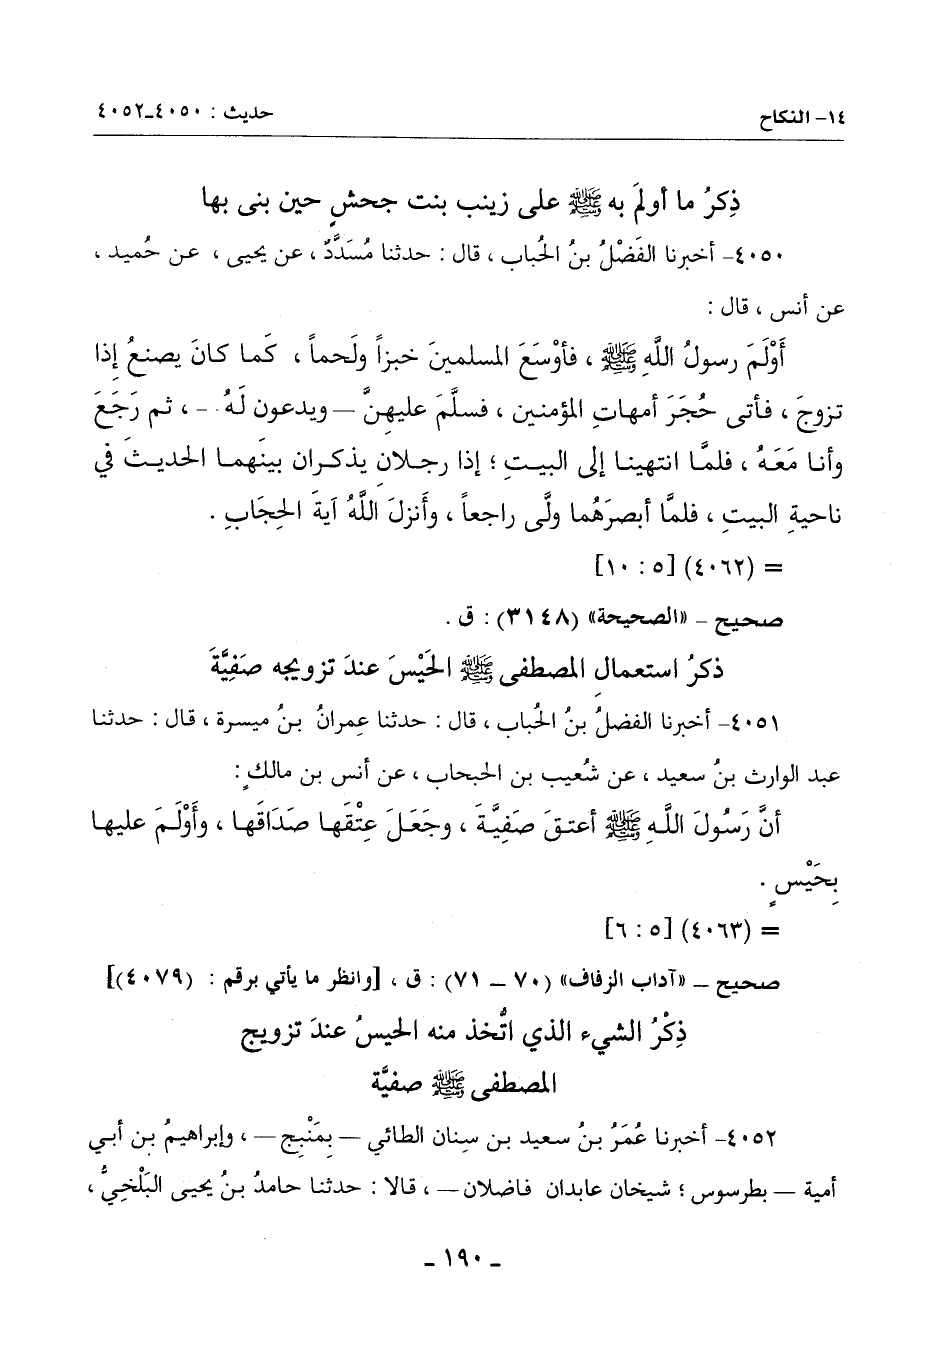 ١٤- النكاح
حديث : ٤٠٥٠-٤٠٥٢
ذِكرُ ما أولمَ به ﷺ على زينب بنت جحشٍ حين بنى بها
٤٠٥٠- أخبرنا الفَضْلُ بنُ الحُباب ، قال : حدثنا مُسَدَّدٌ ، عن يحيى ، عن حُميد ،
عن أنس ، قال :
أَوْلَمَ رسولُ اللَّهِ ﷺ ، فأوْسَعَ المسلمينَ خبزاً ولَحماً ، كَما كانَ يصنعُ إذا
تزوجَ ، فأتى حُجَرَ أمهاتِ المؤمنين ، فسلَّمَ عليهنَّ – ويدعون لَهُ – ، ثم رَجَعَ
وأنا مَعَهُ ، فلمَّا انتهينا إلى البيتِ ؛ إذا رجلانِ يذكران بينَهما الحديثَ في
ناحيةِ البيتِ ، فلمَّا أبصرَهُما ولَّى راجعاً ، وأَنزلَ اللَّهُ آيةَ الحِجَابِ .
= (٤٠٦٢) [٥ : ١٠]
صحيح – «الصحيحة» (٣١٤٨) : ق .
ذكرُ استعمالِ المصطفى ﷺ الحَيْسَ عندَ تزويجِه صَفِيَّةَ
٤٠٥١- أخبرنا الفضلُ بنُ الحُباب ، قال : حدثنا عِمرانُ بنُ ميسرة ، قال : حدثنا
عبد الوارث بنُ سعيد ، عن شُعيب بن الحبحاب ، عن أنس بن مالكٍ :
أنَّ رَسُولَ اللَّهِ ﷺ أعتقَ صَفِيَّةَ ، وجَعَلَ عِتْقَها صَدَاقَها ، وأَوْلَمَ عليها
بِحَيْسٍ .
= (٤٠٦٣) [٥ : ٦]
صحيح – «آداب الزفاف» (٧٠ – ٧١) : ق ، [وانظر ما يأتي برقم : (٤٠٧٩)]
ذِكْرُ الشيءِ الذي اتُّخذ منه الحيسُ عندَ تزويج
المصطفى ﷺ صفيَّة
٤٠٥٢- أخبرنا عُمَرُ بنُ سعيد بن سِنان الطائي – بِمَنْبِج – ، وإبراهيمُ بن أبي
أمية – بطرسوس ؛ شيخان عابدان فاضلان – ، قالا : حدثنا حامدُ بنُ يحيى البَلْخِيُّ ،
- ١٩٠ -